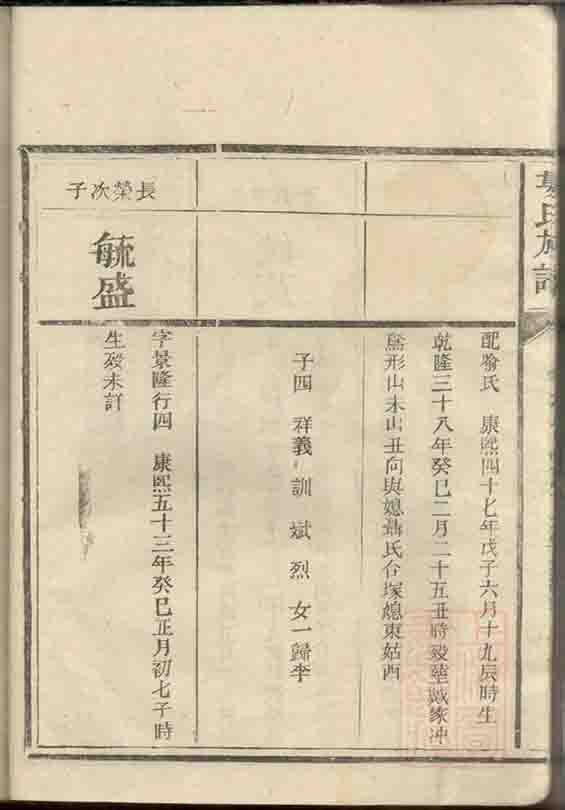 氏族譜
配喻氏 康熙四十七年戊子六月十九辰時生
乾隆三十八年癸巳二月二十五丑時歿葬戚家冲
形山未山丑向與媳聶氏合塚媳東姑西
子四 祥義 訓 斌 烈 女一歸李
長榮次子
毓盛
字景隆行四 康熙五十三年癸巳正月初七子時
生歿未詳